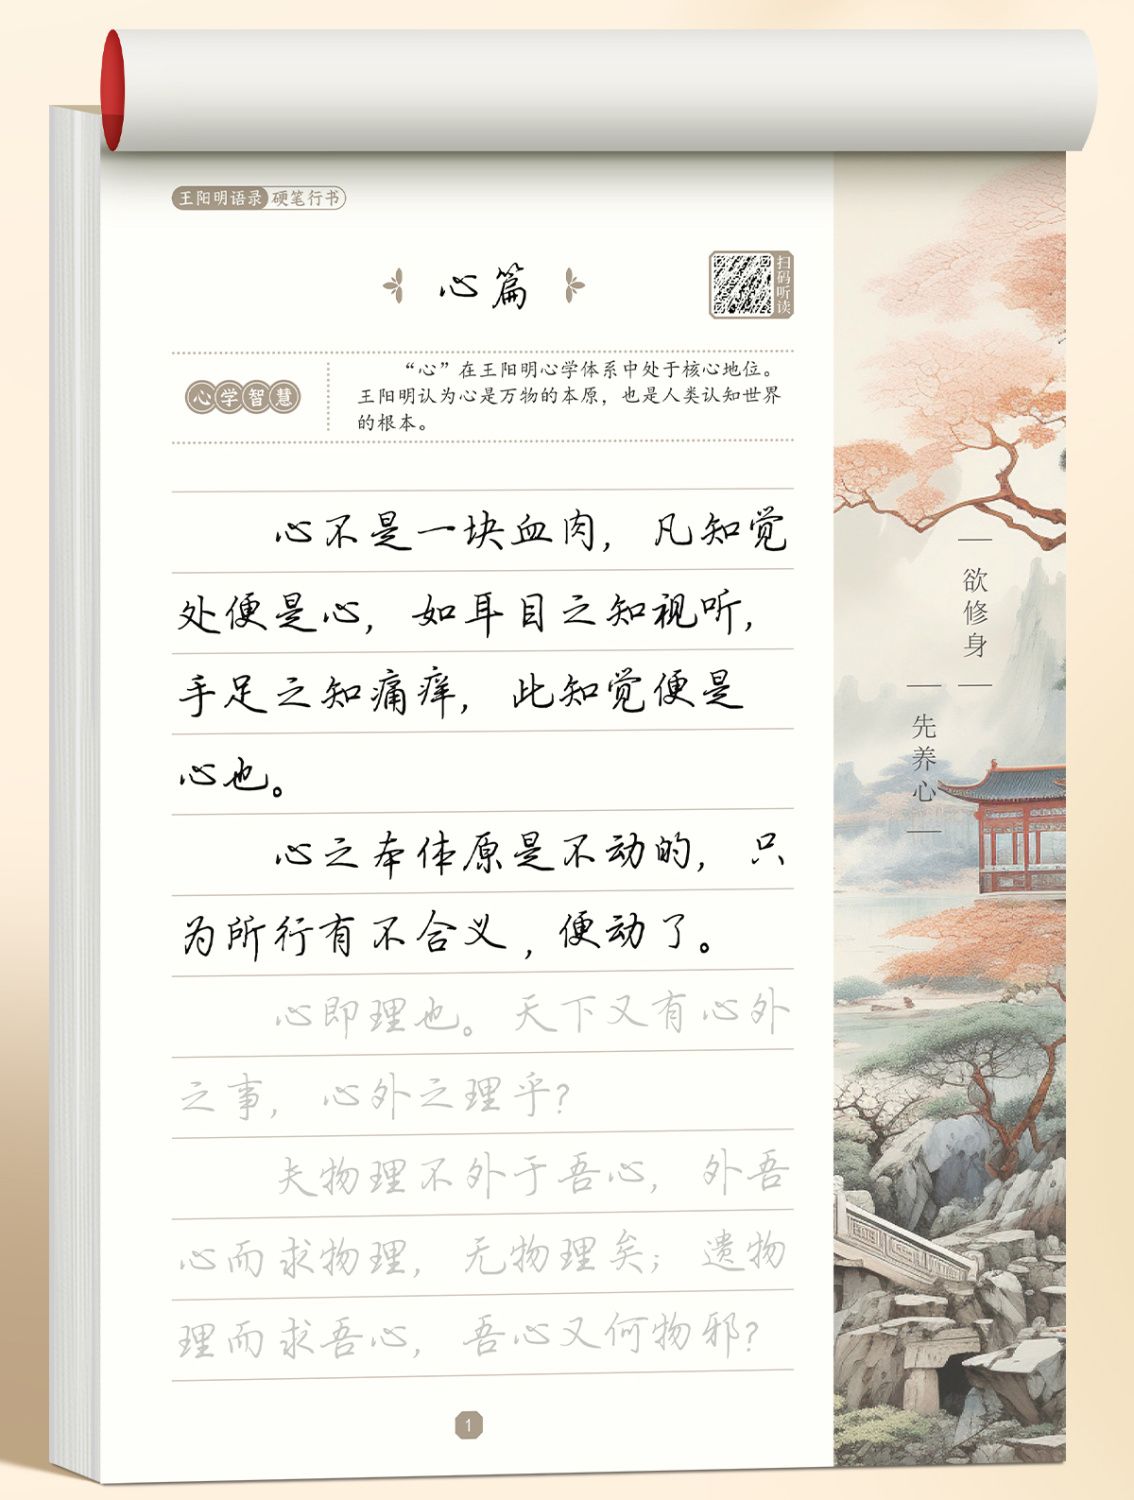 王阳明语录 硬笔行书
心篇
扫码听读
心学智慧
“心”在王阳明心学体系中处于核心地位。
王阳明认为心是万物的本原，也是人类认知世界
的根本。
心不是一块血肉，凡知觉
处便是心，如耳目之知视听，
手足之知痛痒，此知觉便是
心也。
心之本体原是不动的，只
为所行有不合义，便动了。
心即理也。天下又有心外
之事，心外之理乎？
夫物理不外于吾心，外吾
心而求物理，无物理矣；遗物
理而求吾心，吾心又何物邪？
欲修身
先养心
1